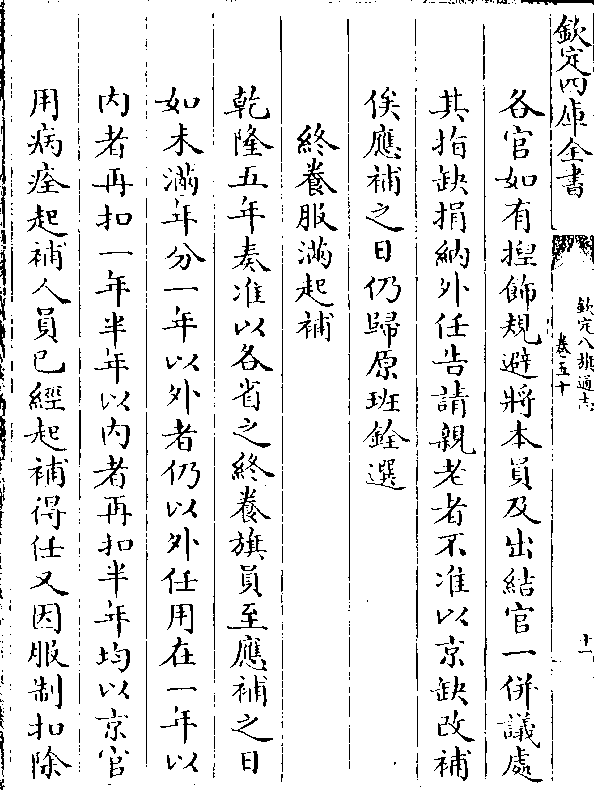 欽定四庫全書
欽定八旗通志
卷五十
十一
各官如有揑飾規避將本員及出結官一併議處
其指缺捐納外任告請親老者不准以京缺改補
俟應補之日仍歸原班銓選
終養服滿起補
乾隆五年奏准以各省之終養旗員至應補之日
如未滿年分一年以外者仍以外任用在一年以
內者再扣一年半年以內者再扣半年均以京官
用病痊起補人員已經起補得任又因服制扣除